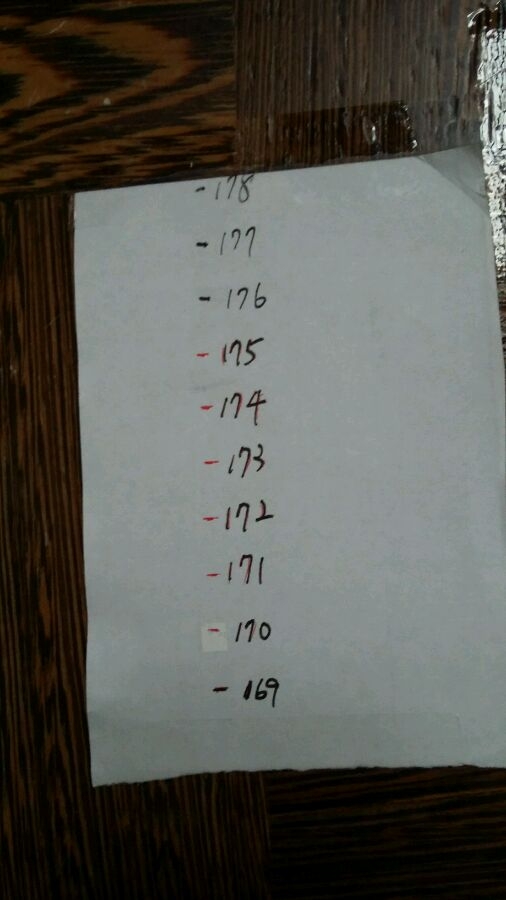 - 178
- 177
- 176
- 175
- 174
- 173
- 172
- 171
- 170
- 169